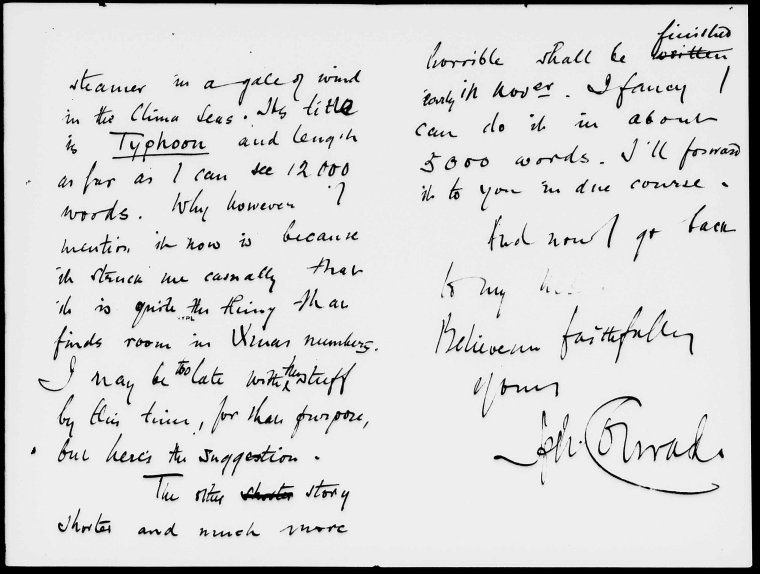 steamer in a gale of wind
in the China Seas. Its title
is Typhoon and length
as far as I can see 12000
words. Why however I
mention it now is because
it struck me casually that
it is quite the thing that
finds room in Xmas numbers.
I may be too late with this stuff
by this time, for that purpose,
but here's the suggestion.
The other shorter story
shorter and much more
horrible shall be written finished
early in nover. I fancy I
can do it in about
5000 words. I'll forward
it to you in due course.
And now I go back
to my
Believe me faithfully
yours
Jph. Conrad.